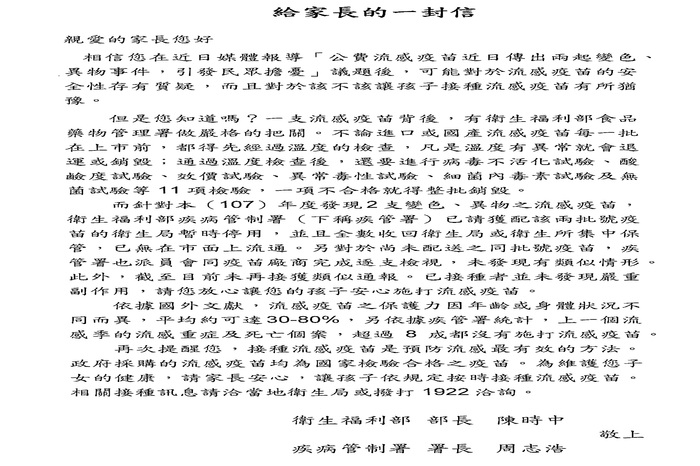 給家長的一封信
親愛的家長您好
相信您在近日媒體報導「公費流感疫苗近日傳出兩起變色、
異物事件，引發民眾擔憂」議題後，可能對於流感疫苗的安
全性存有質疑，而且對於該不該讓孩子接種流感疫苗有所猶
豫。
但是您知道嗎？一支流感疫苗背後，有衛生福利部食品
藥物管理署做嚴格的把關。不論進口或國產流感疫苗每一批
在上市前，都得先經過溫度的檢查，凡是溫度有異常就會退
運或銷毀；通過溫度檢查後，還要進行病毒不活化試驗、酸
鹼度試驗、效價試驗、異常毒性試驗、細菌內毒素試驗及無
菌試驗等 11 項檢驗，一項不合格就得整批銷毀。
而針對本（107）年度發現 2 支變色、異物之流感疫苗，
衛生福利部疾病管制署（下稱疾管署）已請獲配該兩批號疫
苗的衛生局暫時停用，並且全數收回衛生局或衛生所集中保
管，已無在市面上流通。另對於尚未配送之同批號疫苗，疾
管署也派員會同疫苗廠商完成逐支檢視，未發現有類似情形。
此外，截至目前未再接獲類似通報。已接種者並未發現嚴重
副作用，請您放心讓您的孩子安心施打流感疫苗。
依據國外文獻，流感疫苗之保護力因年齡或身體狀況不
同而異，平均約可達 30-80%，另依據疾管署統計，上一個流
感季的流感重症及死亡個案，超過 8 成都沒有施打流感疫苗。
再次提醒您，接種流感疫苗是預防流感最有效的方法。
政府採購的流感疫苗均為國家檢驗合格之疫苗。為維護您子
女的健康，請家長安心，讓孩子依規定按時接種流感疫苗。
相關接種訊息請洽當地衛生局或撥打 1922 洽詢。
衛生福利部 部長 陳時中
敬上
疾病管制署 署長 周志浩